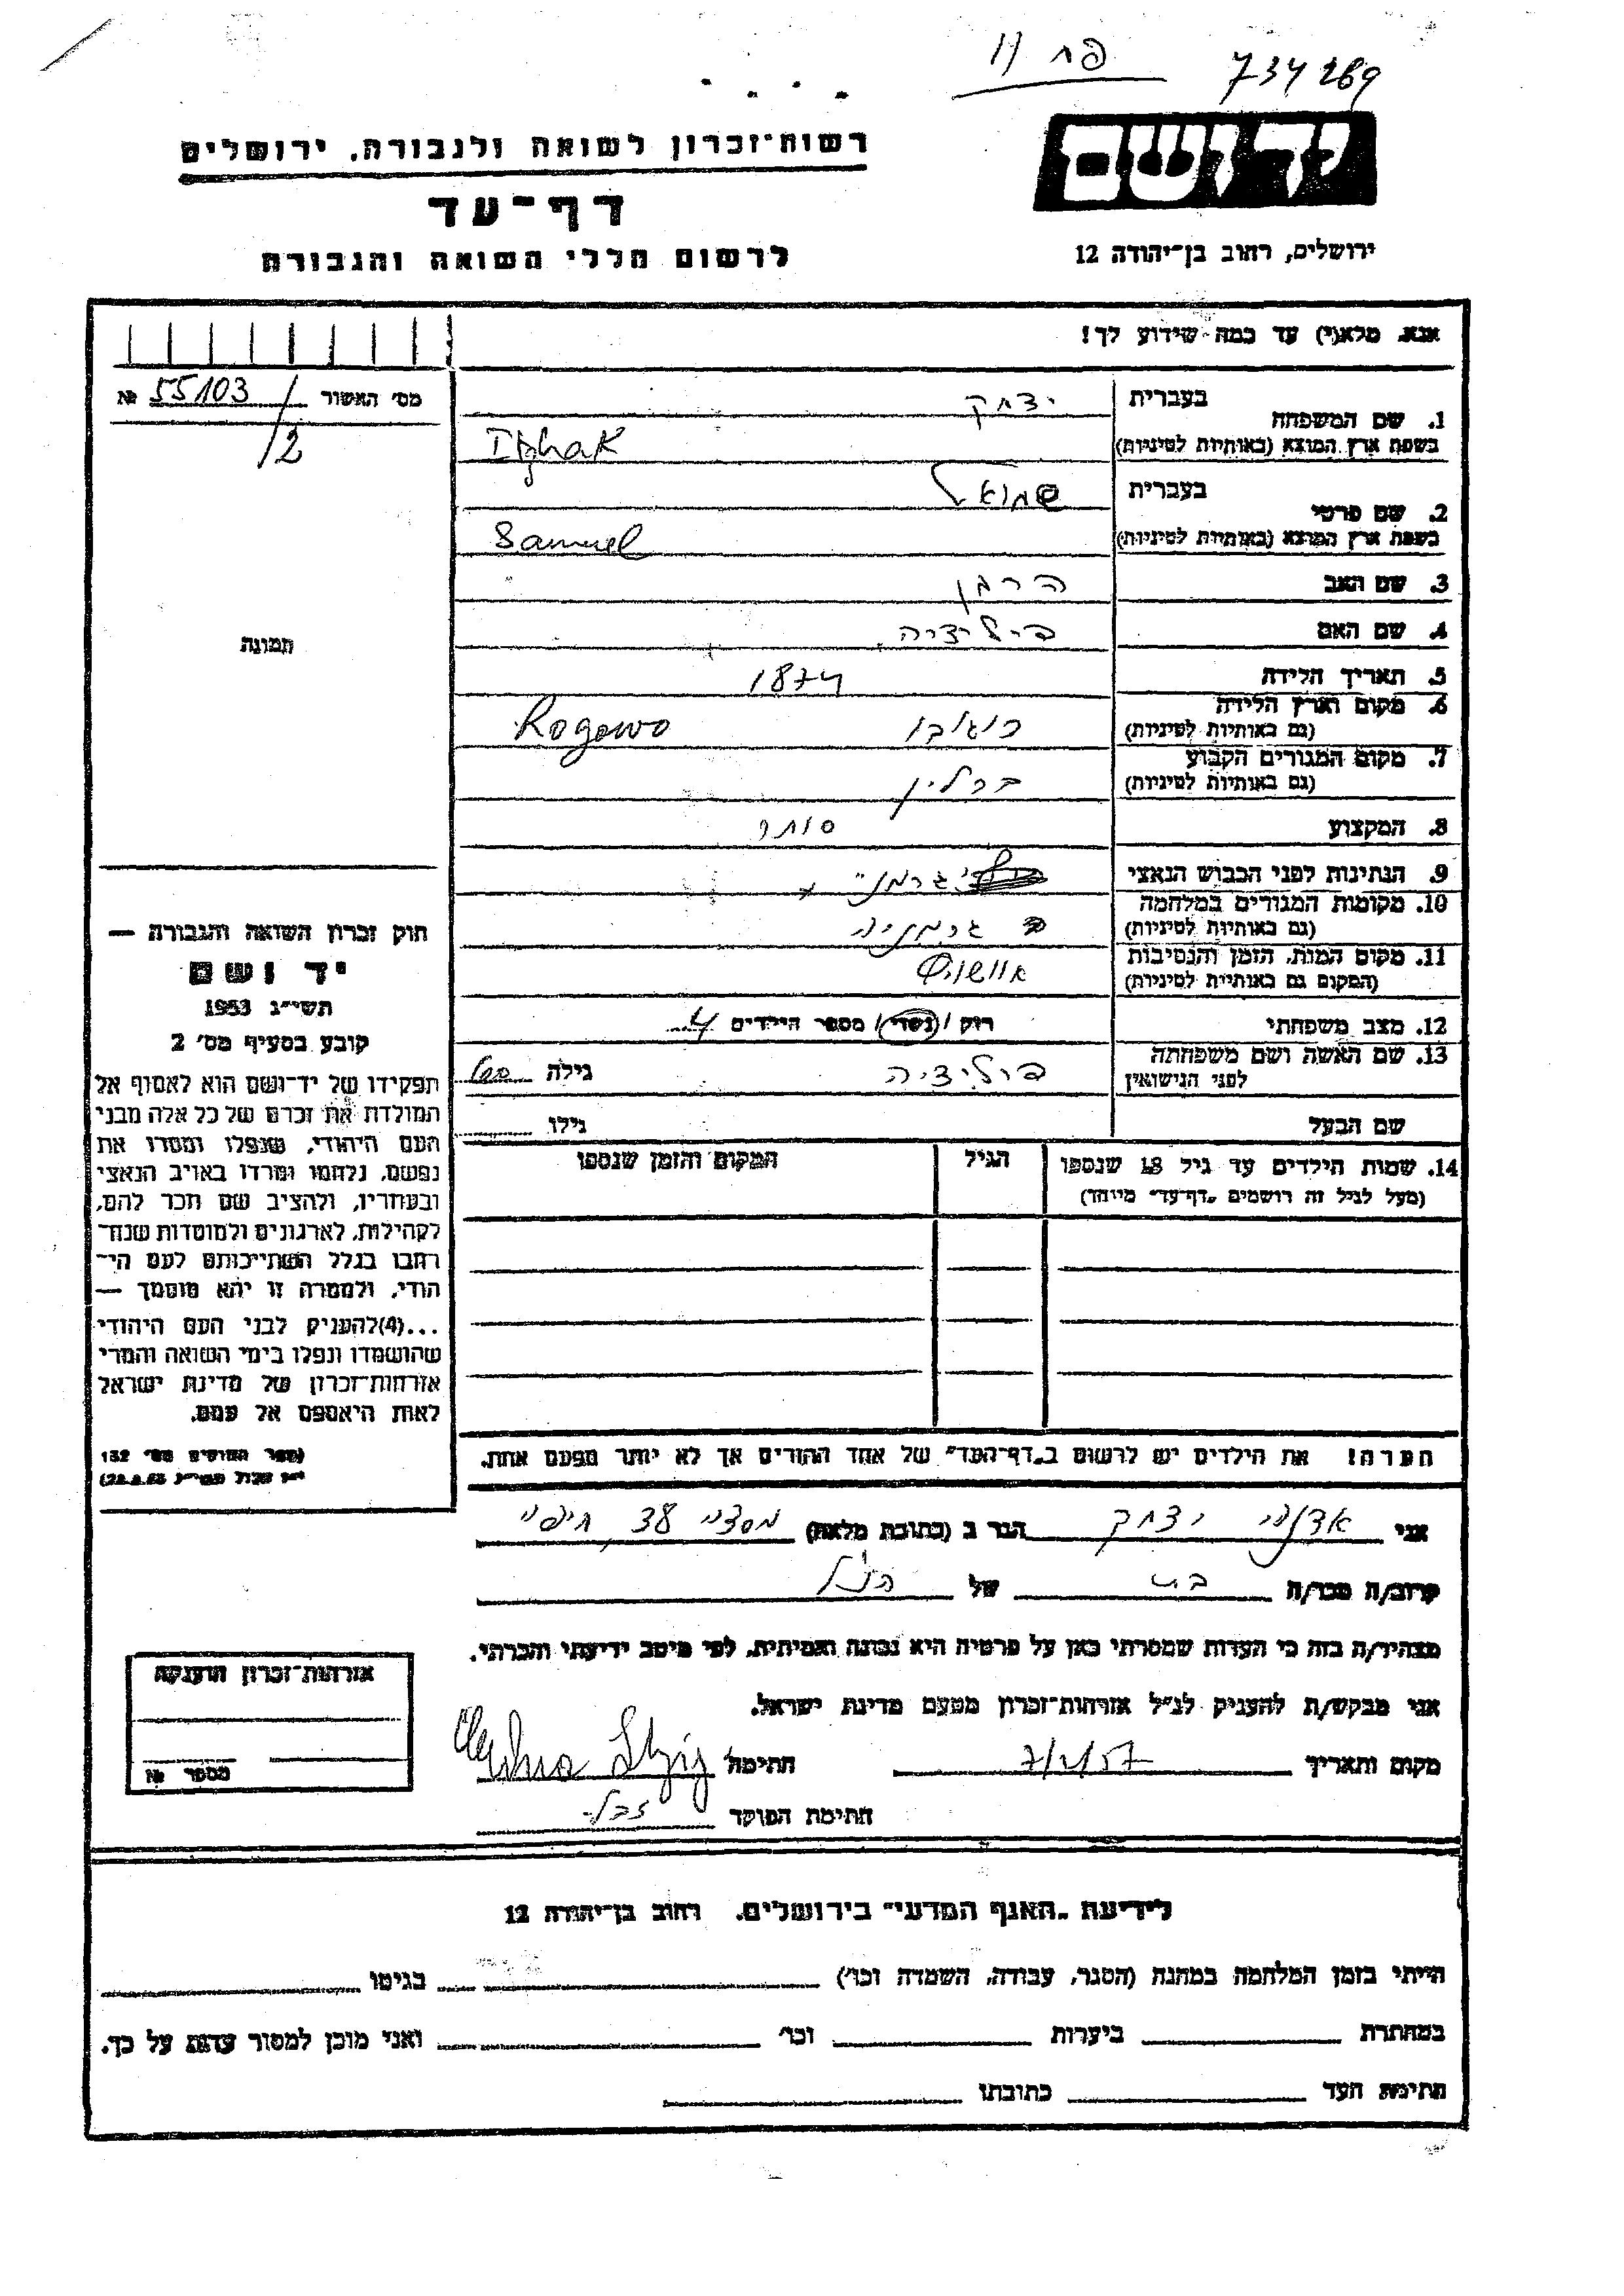 פח 11
734269
יד ושם
ירושלים, רחוב בן־יהודה 12
רשות־זכרון לשואה ולגבורה, ירושלים
דף־עד
לרשום חללי השואה והגבורה
אנא, מלא(י) עד כמה שידוע לך!
מס' האשור 55103 №
/2
תמונה
בעברית יצחק
1. שם המשפחה
בשפת ארץ המוצא (באותיות לטיניות) Itzhak
בעברית שמואל
2. שם פרטי
בשפת ארץ המוצא (באותיות לטיניות) Samuel
3. שם האב הרמן
4. שם האם
5. תאריך הלידה 1874
6. מקום וארץ הלידה
(גם באותיות לטיניות) רוגובו Rogowo
7. מקום המגורים הקבוע
(גם באותיות לטיניות) ברלין
8. המקצוע סוחר
9. הנתינות לפני הכבוש הנאצי
10. מקומות המגורים במלחמה
(גם באותיות לטיניות) גרמניה
11. מקום המות, הזמן והנסיבות
(המקום גם באותיות לטיניות) אושויץ
12. מצב משפחתי רוק / נשוי / מספר הילדים 4
13. שם האשה ושם משפחתה
לפני הנישואין גילה
שם הבעל גילו
14. שמות הילדים עד גיל 18 שנספו הגיל המקום והזמן שנספו
(מעל לגיל זה רושמים „דף־עד" מיוחד)
חוק זכרון השואה והגבורה —
יד ושם
תשי"ג 1953
קובע בסעיף מס' 2
תפקידו של יד־ושם הוא לאסוף אל
המולדת את זכרם של כל אלה מבני
העם היהודי, שנפלו ומסרו את
נפשם, נלחמו ומרדו באויב הנאצי
ובעוזריו, ולהציב שם וזכר להם,
לקהילות, לארגונים ולמוסדות שנח־
רבו בגלל השתייכותם לעם הי־
הודי, ולמטרה זו יהא מוסמך —
...(4)להעניק לבני העם היהודי
שהושמדו ונפלו בימי השואה והמרי
אזרחות־זכרון של מדינת ישראל
לאות היאספם אל עמם.
(ספר החוקים מס' 132
הערה! את הילדים יש לרשום ב„דף־העד" של אחד ההורים אך לא יותר מפעם אחת.
אני יצחק הגר ב (כתובת מלאה) 38
קרוב/ה מכר/ה בת של הנ"ל
מצהיר/ה בזה כי העדות שמסרתי כאן על פרטיה היא נכונה ואמיתית, לפי מיטב ידיעתי והכרתי.
אני מבקש/ת להעניק לנ"ל אזרחות־זכרון מטעם מדינת ישראל.
מקום ותאריך חתימה
חתימת הפוקד
אזרחות־זכרון הוענקה
מספר №
לידיעת „האגף המדעי" בירושלים, רחוב בן־יהודה 12
הייתי בזמן המלחמה במחנה (הסגר, עבודה, השמדה וכו') בגיטו
במחתרת ביערות וכו' ואני מוכן למסור עדות על כך.
חתימת העד כתובתו